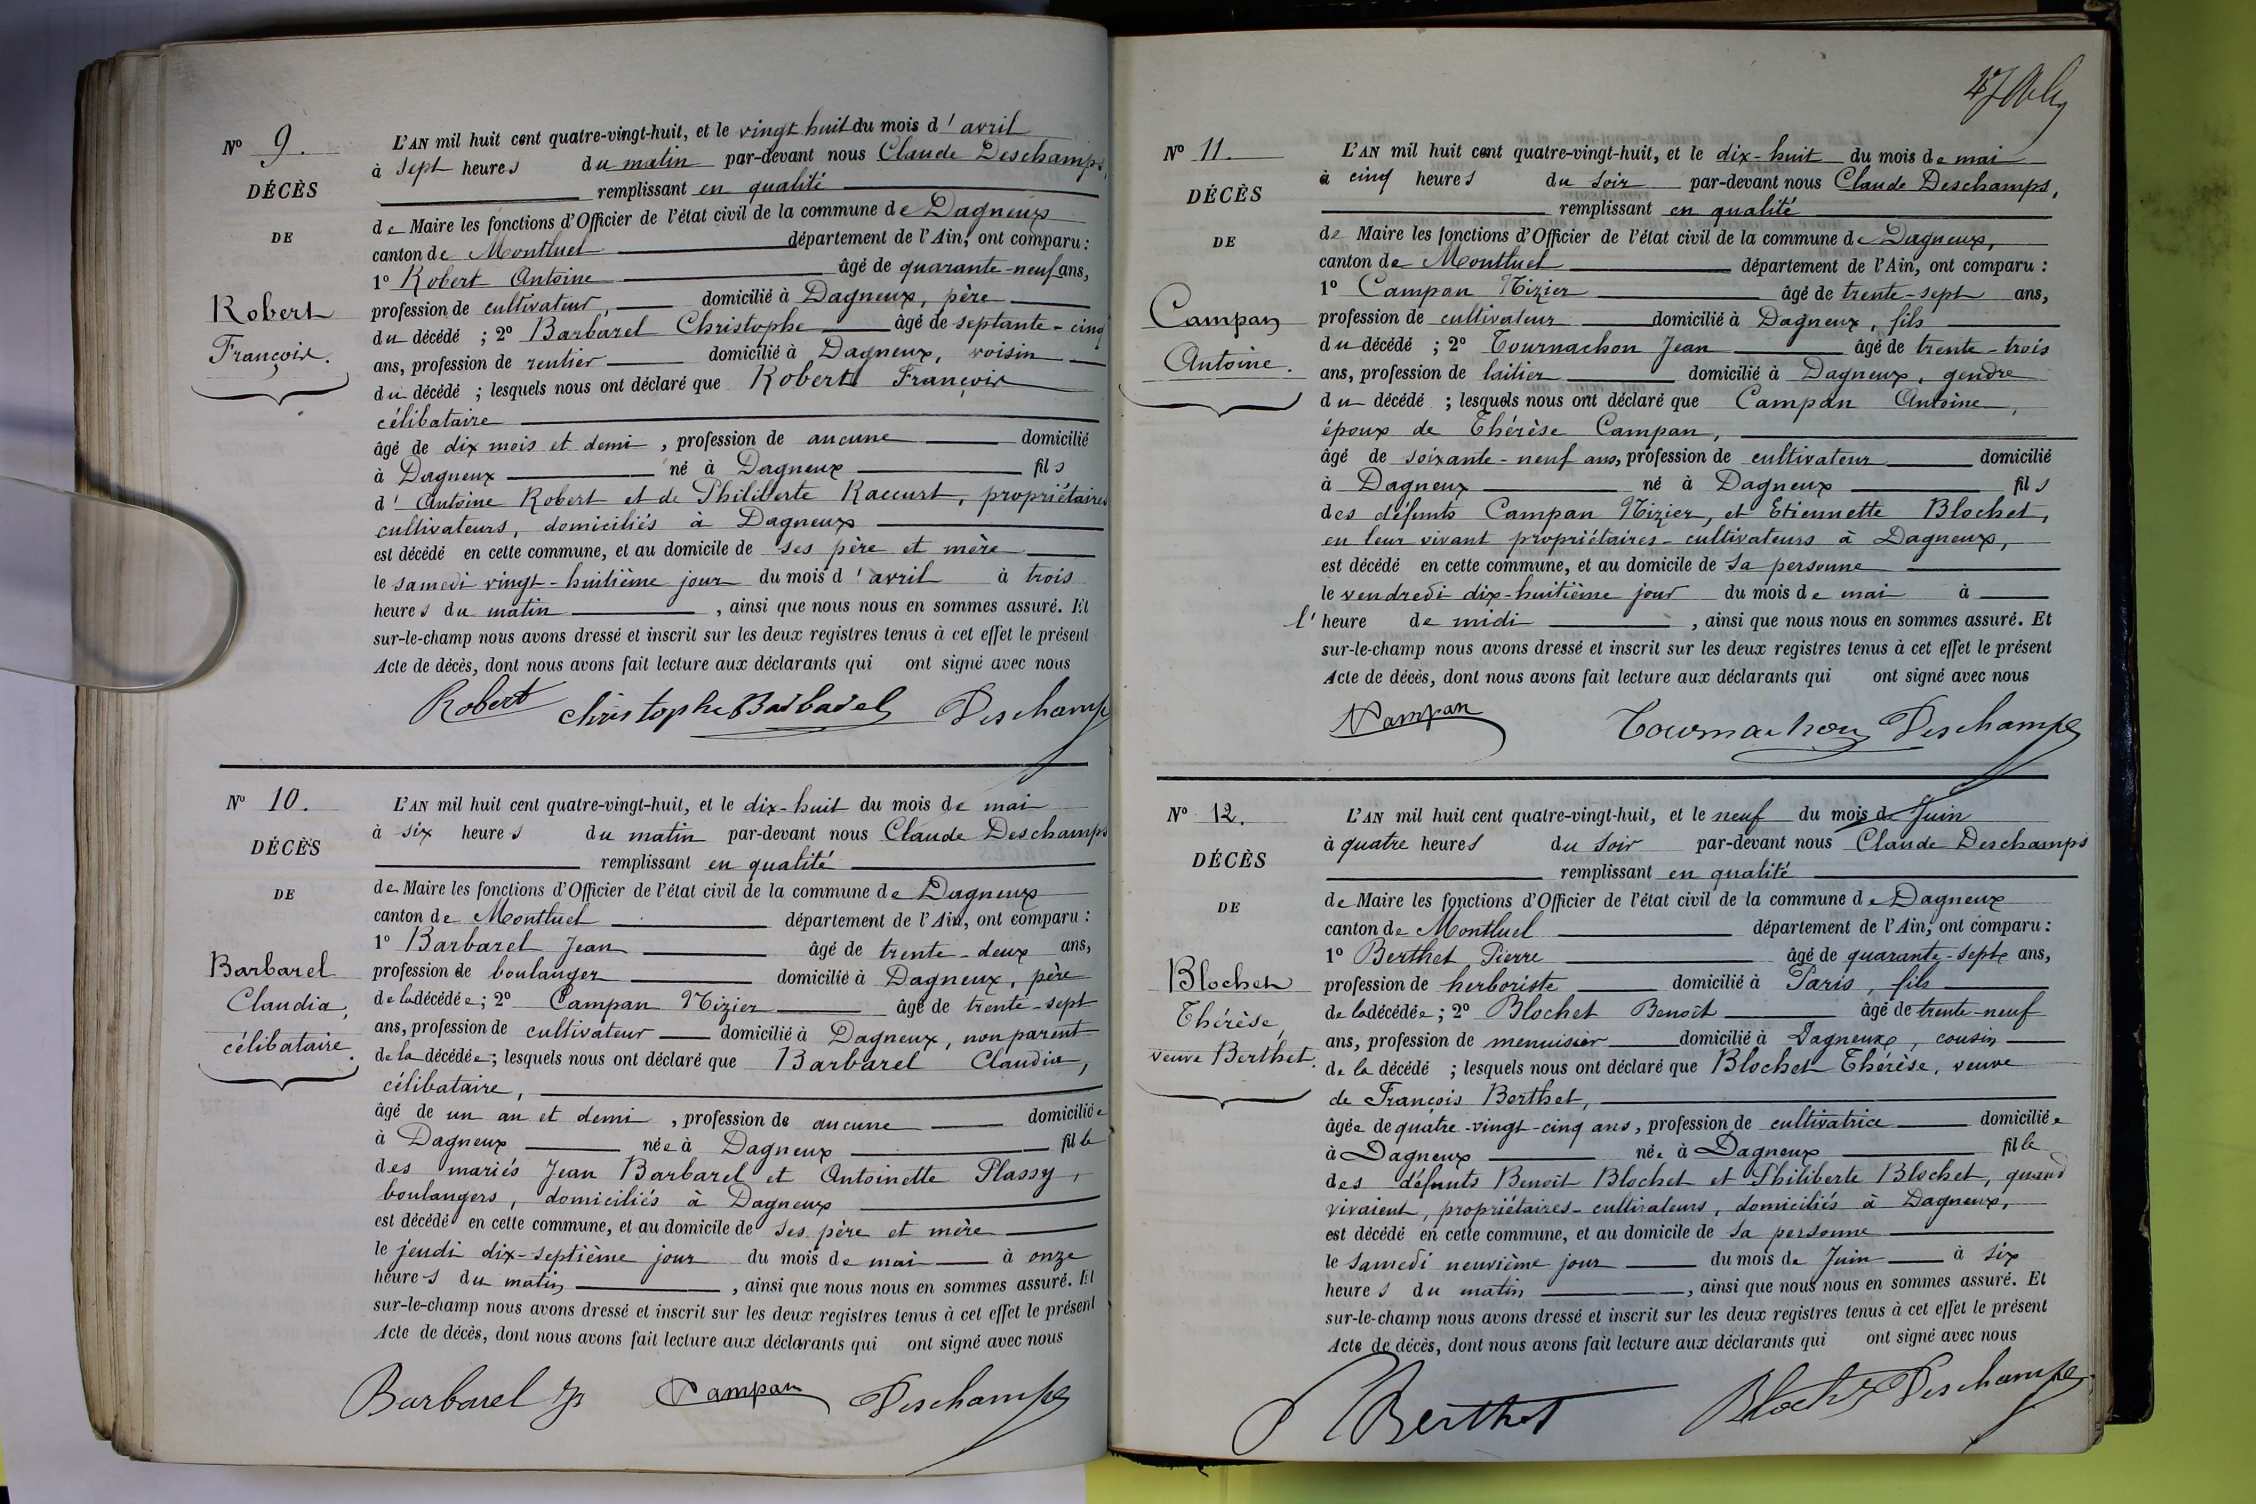 Nº 9.
DÉCÈS
DE
Robert
François.
L'AN mil huit cent quatre-vingt-huit, et le vingt huit du mois d'avril
à sept heures du matin par-devant nous Claude Deschamps,
remplissant en qualité
de Maire les fonctions d'Officier de l'état civil de la commune de Dagneux
canton de Montluel département de l'Ain, ont comparu :
1º Robert Antoine âgé de quarante-neuf ans,
profession de cultivateur, domicilié à Dagneux, père
du décédé ; 2º Barbarel Christophe âgé de septante-cinq
ans, profession de rentier domicilié à Dagneux, voisin
du décédé ; lesquels nous ont déclaré que Robert François
célibataire
âgé de dix mois et demi, profession de aucune domicilié
à Dagneux né à Dagneux fils
d'Antoine Robert et de Philiberte Raccurt, propriétaires
cultivateurs, domiciliés à Dagneux
est décédé en cette commune, et au domicile de ses père et mère
le samedi vingt-huitième jour du mois d'avril à trois
heures du matin, ainsi que nous nous en sommes assuré. Et
sur-le-champ nous avons dressé et inscrit sur les deux registres tenus à cet effet le présent
Acte de décès, dont nous avons fait lecture aux déclarants qui ont signé avec nous
Robert Christophe Barbarel Deschamps
Nº 10.
DÉCÈS
DE
Barbarel
Claudia,
célibataire.
L'AN mil huit cent quatre-vingt-huit, et le dix-huit du mois de mai
à six heures du matin par-devant nous Claude Deschamps
remplissant en qualité
de Maire les fonctions d'Officier de l'état civil de la commune de Dagneux
canton de Montluel département de l'Ain, ont comparu :
1º Barbarel Jean âgé de trente-deux ans,
profession de boulanger domicilié à Dagneux, père
de la décédée ; 2º Campan Nizier âgé de trente-sept
ans, profession de cultivateur domicilié à Dagneux, non parent
de la décédée ; lesquels nous ont déclaré que Barbarel Claudia,
célibataire,
âgé de un an et demi, profession de aucune domiciliée
à Dagneux née à Dagneux fille
des mariés Jean Barbarel et Antoinette Plassy,
boulangers, domiciliés à Dagneux
est décédé en cette commune, et au domicile de ses père et mère
le jeudi dix-septième jour du mois de mai à onze
heures du matin, ainsi que nous nous en sommes assuré. Et
sur-le-champ nous avons dressé et inscrit sur les deux registres tenus à cet effet le présent
Acte de décès, dont nous avons fait lecture aux déclarants qui ont signé avec nous
Barbarel Campan Deschamps
47
Nº 11.
DÉCÈS
DE
Campan
Antoine.
L'AN mil huit cent quatre-vingt-huit, et le dix-huit du mois de mai
à cinq heures du soir par-devant nous Claude Deschamps,
remplissant en qualité
de Maire les fonctions d'Officier de l'état civil de la commune de Dagneux,
canton de Montluel département de l'Ain, ont comparu :
1º Campan Nizier âgé de trente-sept ans,
profession de cultivateur domicilié à Dagneux, fils
du décédé ; 2º Tournachon Jean âgé de trente-trois
ans, profession de laitier domicilié à Dagneux, gendre
du décédé ; lesquels nous ont déclaré que Campan Antoine,
époux de Thérèse Campan,
âgé de soixante-neuf ans, profession de cultivateur domicilié
à Dagneux né à Dagneux fils
des défunts Campan Nizier, et Etiennette Blochet,
en leur vivant propriétaires-cultivateurs à Dagneux,
est décédé en cette commune, et au domicile de sa personne
le vendredi dix-huitième jour du mois de mai à
l'heure de midi, ainsi que nous nous en sommes assuré. Et
sur-le-champ nous avons dressé et inscrit sur les deux registres tenus à cet effet le présent
Acte de décès, dont nous avons fait lecture aux déclarants qui ont signé avec nous
Campan Tournachon Deschamps
Nº 12.
DÉCÈS
DE
Blochet
Thérèse,
veuve Berthet.
L'AN mil huit cent quatre-vingt-huit, et le neuf du mois de Juin
à quatre heures du soir par-devant nous Claude Deschamps
remplissant en qualité
de Maire les fonctions d'Officier de l'état civil de la commune de Dagneux
canton de Montluel département de l'Ain, ont comparu :
1º Berthet Pierre âgé de quarante-sept ans,
profession de herboriste domicilié à Paris, fils
de la décédée ; 2º Blochet Benoît âgé de trente-neuf
ans, profession de menuisier domicilié à Dagneux, cousin
de la décédé ; lesquels nous ont déclaré que Blochet Thérèse, veuve
de François Berthet,
âgée de quatre-vingt-cinq ans, profession de cultivatrice domiciliée
à Dagneux née à Dagneux fille
des défunts Benoît Blochet et Philiberte Blochet, quand
vivaient, propriétaires-cultivateurs, domiciliés à Dagneux,
est décédé en cette commune, et au domicile de sa personne
le samedi neuvième jour du mois de Juin à six
heures du matin, ainsi que nous nous en sommes assuré. Et
sur-le-champ nous avons dressé et inscrit sur les deux registres tenus à cet effet le présent
Acte de décès, dont nous avons fait lecture aux déclarants qui ont signé avec nous
P Berthet Blochet Deschamps